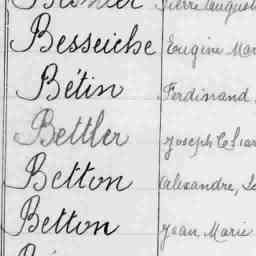 Pierre August
Besseiche Eugène Mar
Bétin Ferdinand
Bettler Joseph Char
Betton Alexandre, Lo
Betton Jean Marie